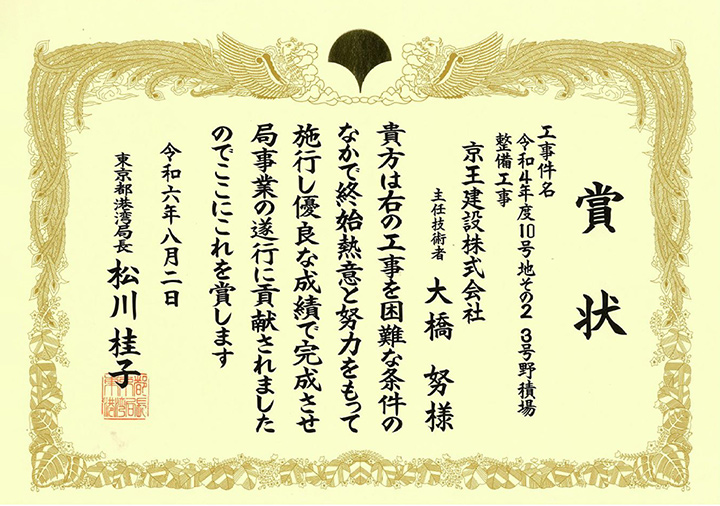 賞状
工事件名
令和4年度10号地その2 3号野積場
整備工事
京王建設株式会社
主任技術者 大橋 努様
貴方は右の工事を困難な条件の
なかで終始熱意と努力をもって
施行し優良な成績で完成させ
局事業の遂行に貢献されました
のでここにこれを賞します
令和六年八月二日
東京都港湾局長 松川 桂子